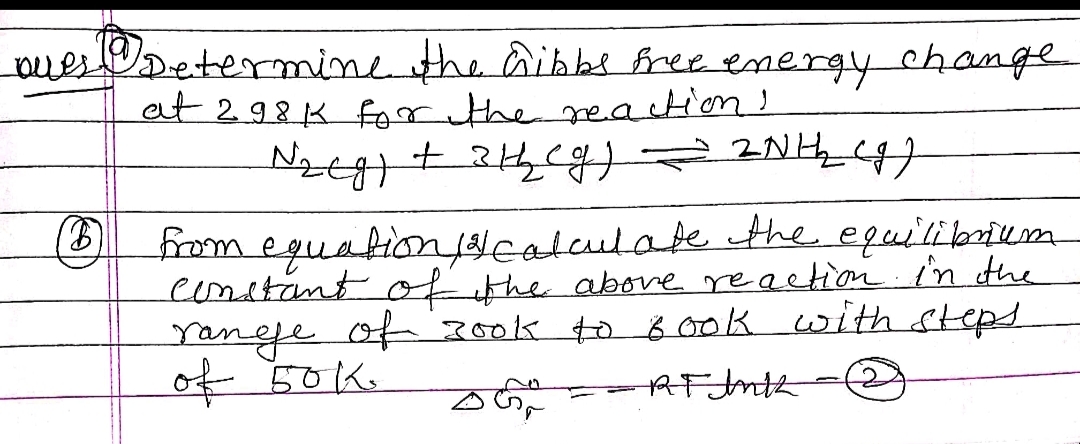 Ques (a) Determine the Gibbs free energy change
at 298K for the reaction:
N₂(g) + 3H₂(g) ⇌ 2NH₂(g)
(B) from equation (2) calculate the equilibrium
constant of the above reaction in the
range of 300K to 600K with steps
of 50K.
ΔG°ᵣ = -RT lnk - (2)